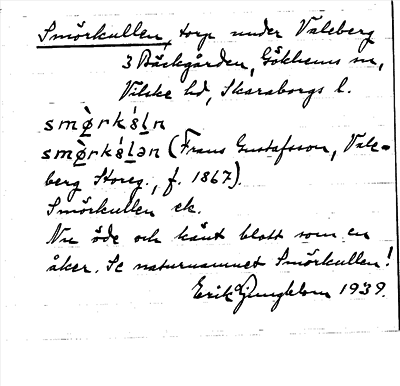 Smörkullen, torp under Valeberg
3 Bäckgården, Gökhems sn,
Vilske hd, Skaraborgs l.
smø̀rkśḷn
smø̀rkśḷən (Frans Gustafsson, Vale-
berg Storeg., f. 1867).
Smörkullen ek.
Nu öde och känt blott som en
åker. Se naturnamnet Smörkullen!
Erik Ljungblom 1939.